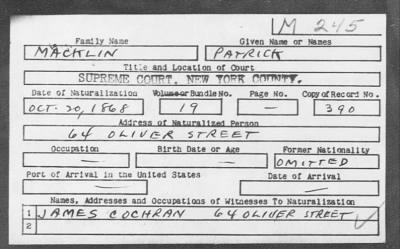 M 245
Family Name Given Name or Names
MACKLIN PATRICK
Title and Location of Court
SUPREME COURT, NEW YORK COUNTY.
Date of Naturalization Volume or Bundle No. Page No. Copy of Record No.
OCT. 20, 1868 19 — 390
Address of Naturalized Person
64 OLIVER STREET
Occupation Birth Date or Age Former Nationality
— — OMITTED
Port of Arrival in the United States Date of Arrival
— —
Names, Addresses and Occupations of Witnesses To Naturalization
1 JAMES COCHRAN 64 OLIVER STREET
2